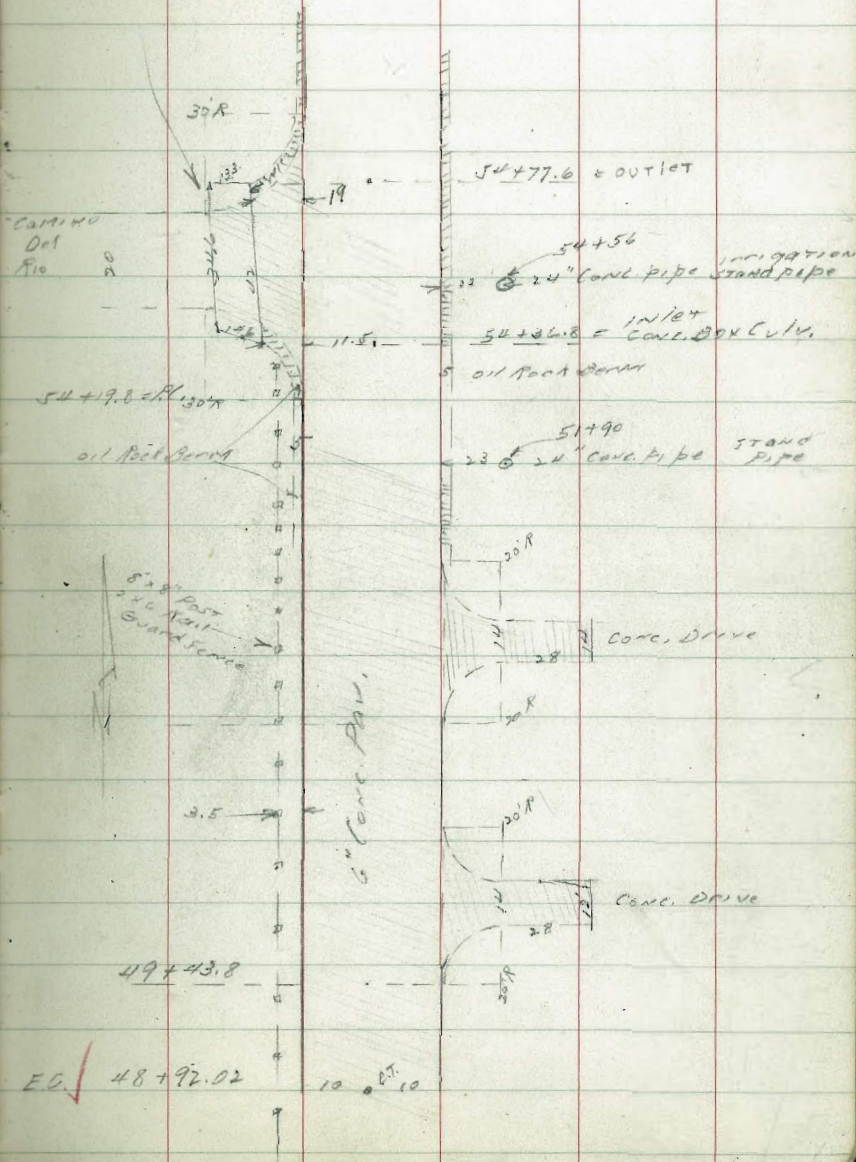 30'R
133
19
54+77.6 = OUTLET
Camino
Del
Rio
20
34.6
42
54+56
23
24" Conc. pipe
irrigation
Standpipe
14.6
11.5
54+36.8 = inlet
Conc. Box Culv.
5 oil Rock Berm
54+19.8 = P.I. 30'R
oil Rock Berm
5
51+90
23
24" Conc. pipe
Stand
Pipe
20'R
8"x8" Post
2x6 Rail
Guard Fence
14
28
12
Conc. Drive
20'R
6" Conc. Pav.
3.5
20'R
14
28
12
Conc. Drive
49+43.8
20'R
E.C. 48+92.02
10
P.T.
10